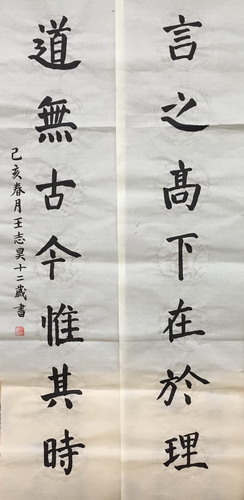 言之高下在於理
道無古今惟其時
己亥春月王志昊十二歲書